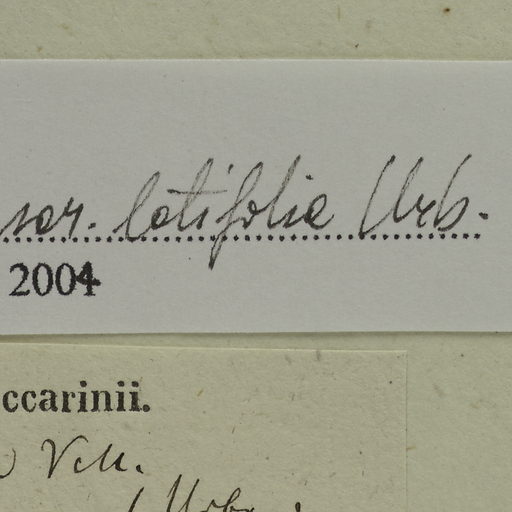 var. latifolia Urb.
2004
ccarinii.
Vell.
Urb.